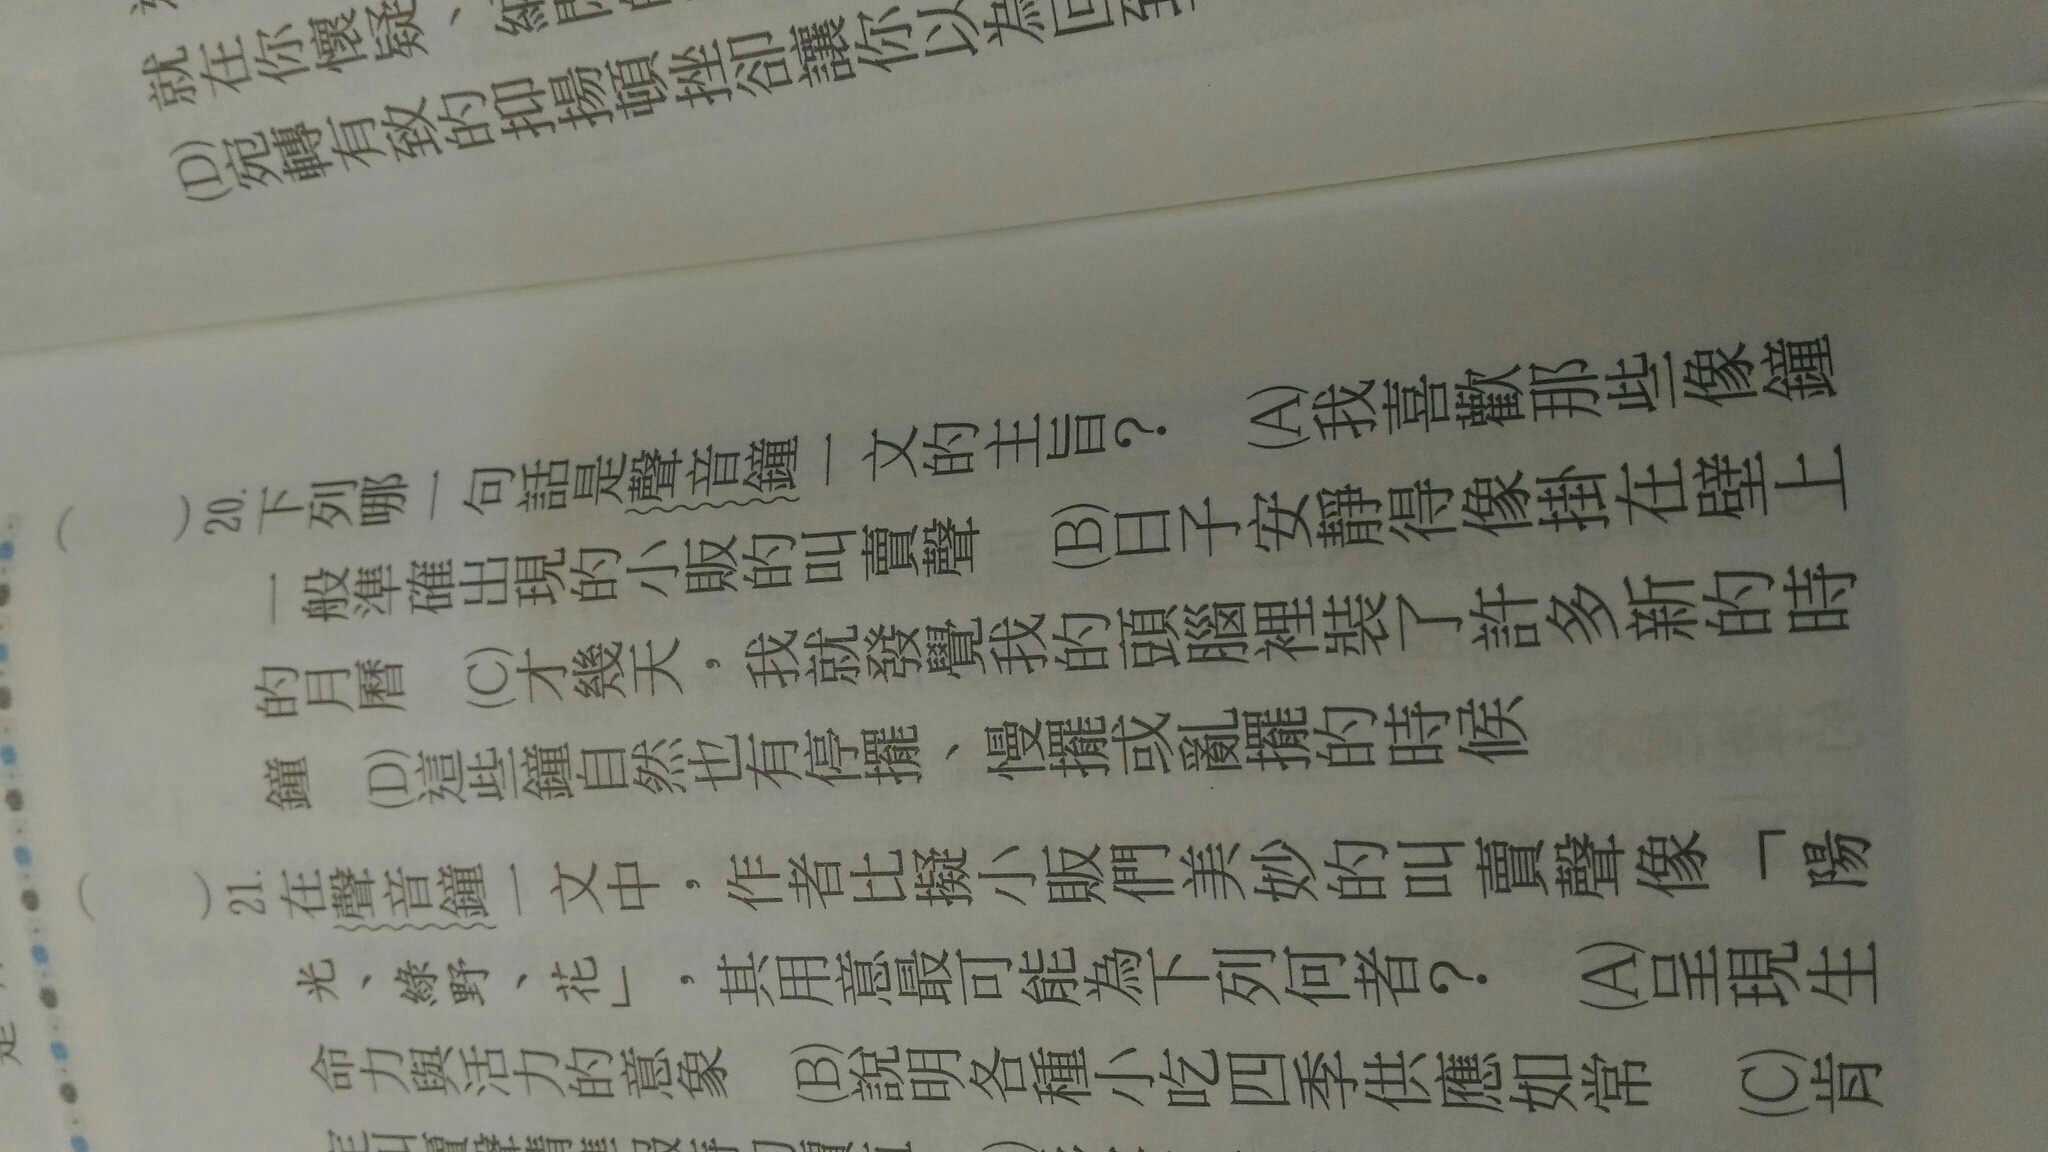 就在你懷疑、
(D)宛轉有致的抑揚頓挫卻讓你以為回
( )20.下列哪一句話是聲音鐘一文的主旨? (A)我喜歡那些像鐘
一般準確出現的小販的叫賣聲 (B)日子安靜得像掛在壁上
的月曆 (C)才幾天,我就發覺我的頭腦裡裝了許多新的時
鐘 (D)這些鐘自然也有停擺、慢擺或亂擺的時候
( )21.在聲音鐘一文中,作者比擬小販們美妙的叫賣聲像「陽
光、綠野、花」,其用意最可能為下列何者? (A)呈現生
命力與活力的意象 (B)說明各種小吃四季供應如常 (C)肯